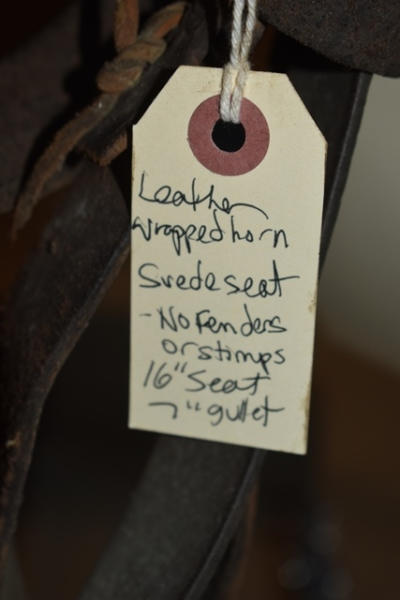 Leather
wrapped horn
Suede seat
- No Fenders
or stirrups
16" Seat
7" gullet